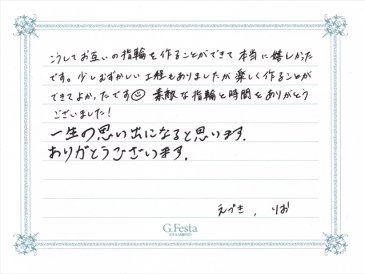 こうしてお互いの指輪を作ることができて本当に嬉しかった
です。少しむずかしい工程もありましたが楽しく作ることが
できてよかったです☺ 素敵な指輪と時間をありがとう
ございました!
一生の思い出になると思います.
ありがとうございます.
えづき , りお
G.Festa